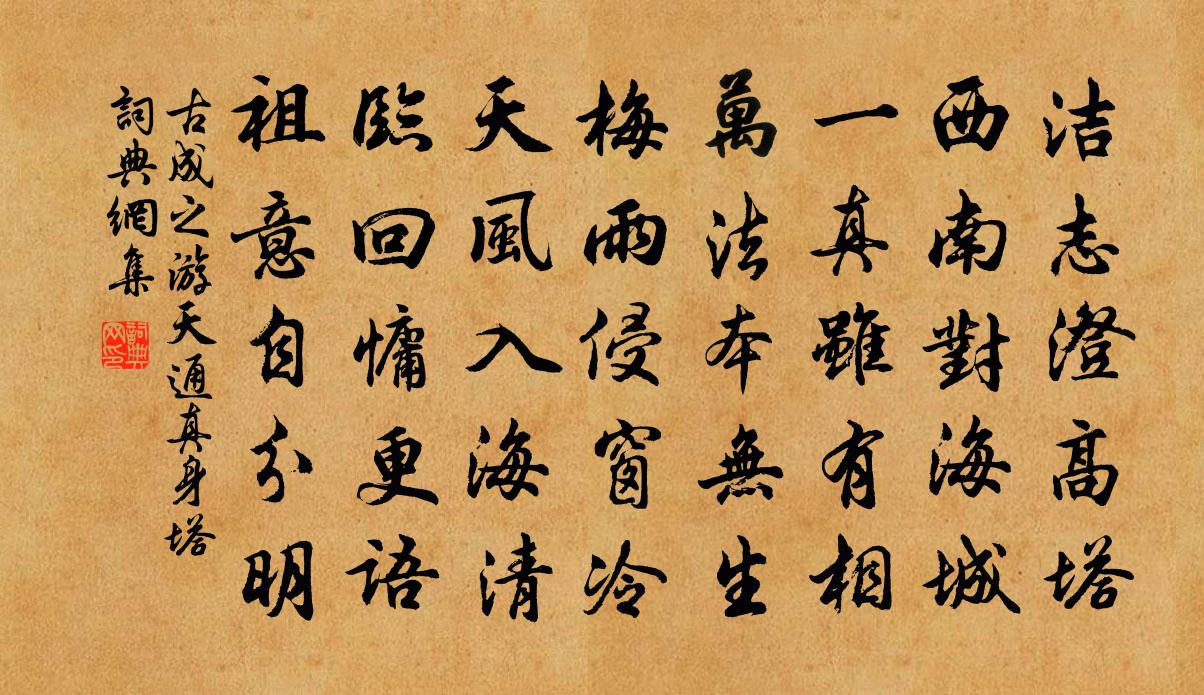 洁志澄高塔
西南對海城
一真雖有相
萬法本無生
梅雨侵窗冷
天風入海清
臨回慵更語
祖意自分明
古成之游天通真身塔
詞典網集
詞典网印